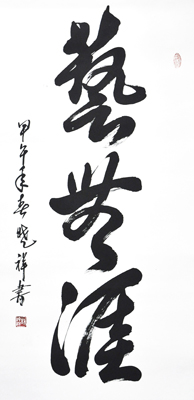 藝無涯
甲午年春曉祥書